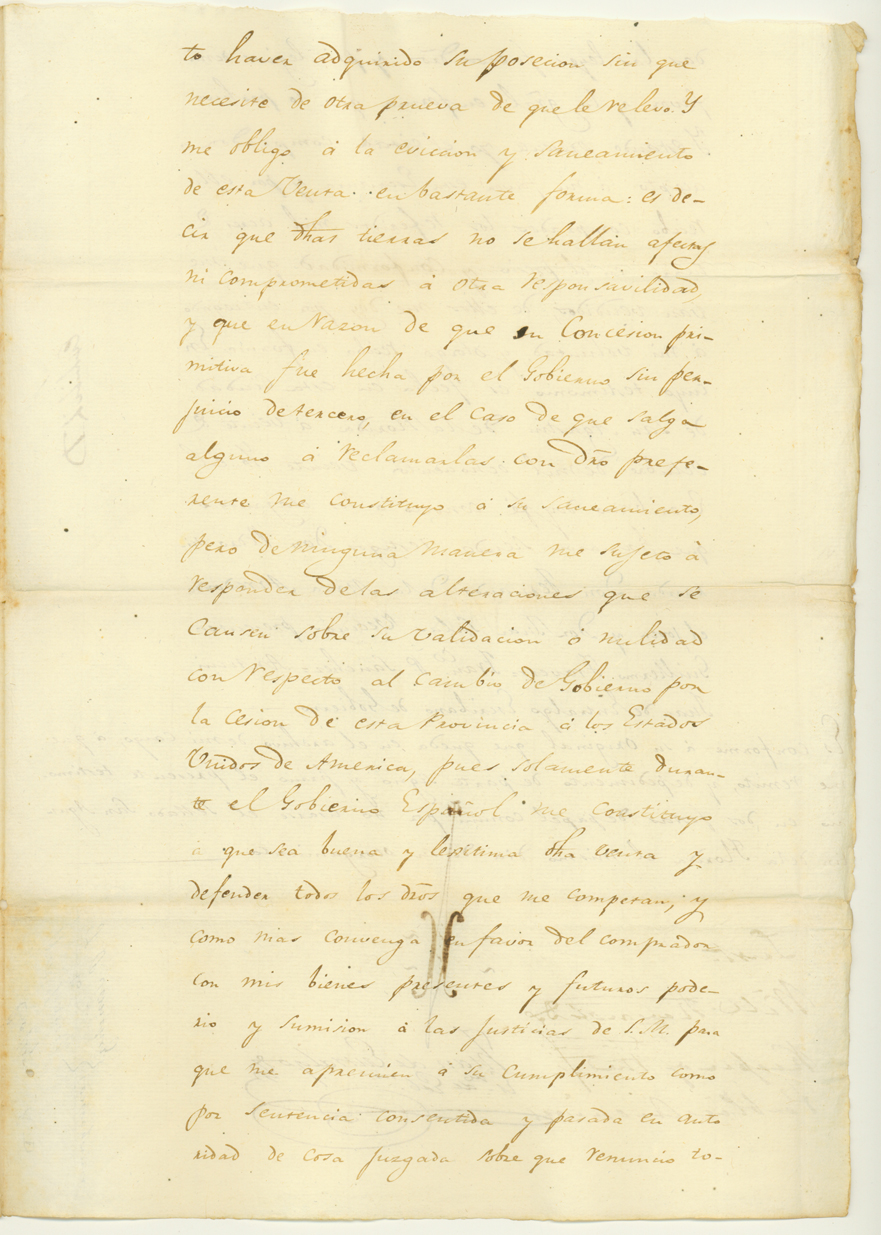 to haver adquirido su posecion sin que
necesite de otra prueva de que le relevo. Y
me obligo á la eviccion y saneamiento
de esta Venta en bastante forma: es de-
cir que dhas tierras no se hallan afectas
ni comprometidas á otra responsavilidad,
y que en Razon de que su Concesion pri-
mitiva fue hecha por el Gobierno sin per-
juicio de tercero, en el caso de que salga
alguno á reclamarlas con dro prefe-
rente me constituyo á su saneamiento,
pero de ninguna manera me sujeto à
responder de las alteraciones que se
Causen sobre su validacion ó nulidad
con Respecto al cambio de Gobierno por
la Cesion de esta Provincia á los Estados
Unidos de America, pues solamente, duran-
te el Gobierno Español me constituyo
á que sea buena y lexitima dha venta y
defender todos los dros que me competan, y
como mas convenga en favor del comprador
con mis bienes presentes y futuros pode-
rio y sumision á las Justicias de S.M. para
que me apremien á su Cumplimiento como
por sentencia consentida y pasada en auto
ridad de cosa juzgada sobre que renuncio to-